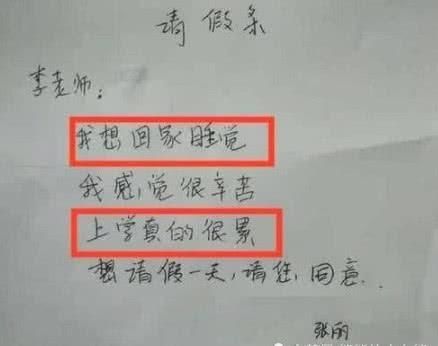 请假条
李老师：
我想回家睡觉
我感觉很辛苦
上学真的很累
想请假一天，请您同意..
张丽